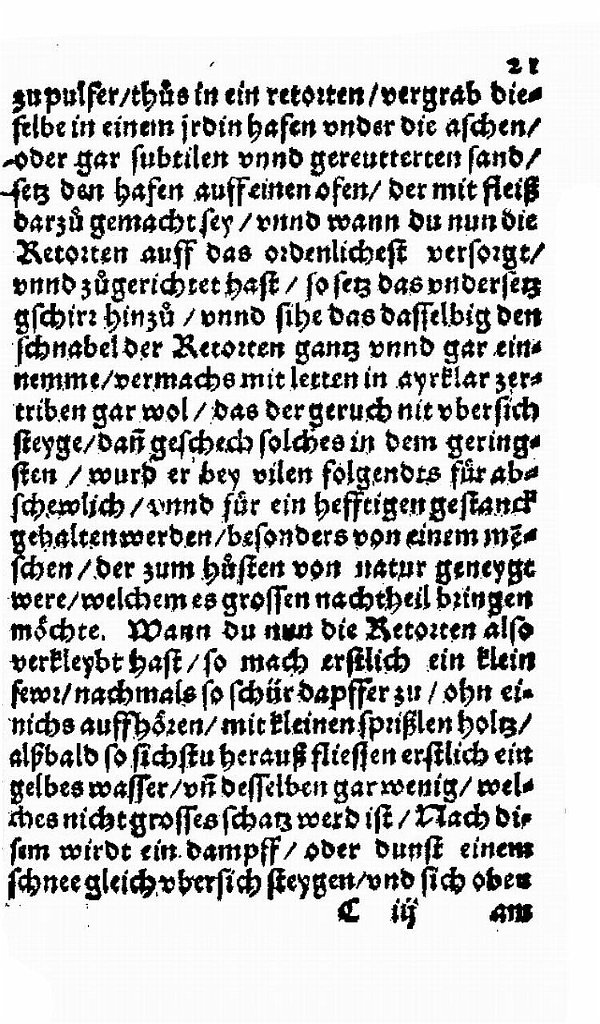 21
zu pulfer/thůs in ein retorten/vergrab die-
selbe in einem jrdin hafen vnder die aschen/
oder gar subtilen vnnd gereutterten sand/
setz den hafen auff einen ofen/ der mit fleiß
darzů gemacht sey /vnnd wann du nun die
Retorten auff das ordenlichest versorgt/
vnnd zůgerichtet hast / so setz das vndersetz
gschirr hinzů /vnnd sihe das dasselbig den
schnabel der Retorten gantz vnnd gar ein-
nemme/vermachs mit letten in ayrklar zer-
triben gar wol / das der geruch nit vbersich
steyge/dañ geschech solches in dem gering-
sten / wurd er bey vilen folgendts für ab-
schewlich /vnnd für ein hefftigen gestanck
gehalten werden/besonders von einem mẽ-
schen /der zum hůsten von natur geneygt
were/welchem es grossen nachtheil bringen
möchte. Wann du nun die Retorten also
verkleybt hast/so mach erstlich ein klein
fewr/nachmals so schür dapffer zu / ohn ei-
nichs auffhören/ mit kleinen sprißlen holtz/
alßbald so sichstu herauß fliessen erstlich ein
gelbes wasser/vñ desselben gar wenig/ wel-
ches nicht grosses schatz werd ist / Nach di-
sem wirdt ein dampff/ oder dunst einem
schnee gleich vbersich steygen/vnd sich oben
C iij am